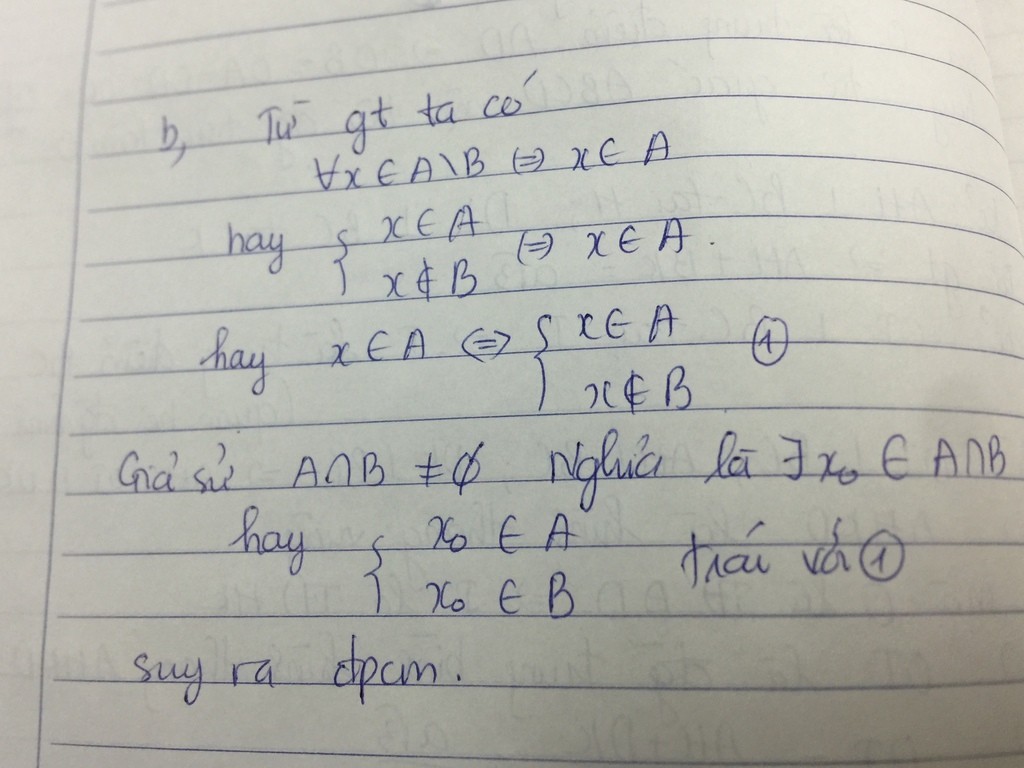 b, Từ gt ta có
∀x ∈ A\B ⇔ x ∈ A
hay { x ∈ A
x ∉ B ⇔ x ∈ A.
hay x ∈ A ⇔ { x ∈ A
x ∉ B ①
Giả sử A∩B ≠ ∅ Nghĩa là ∃ x₀ ∈ A∩B
hay { x₀ ∈ A
x₀ ∈ B trái với ①
suy ra đpcm.